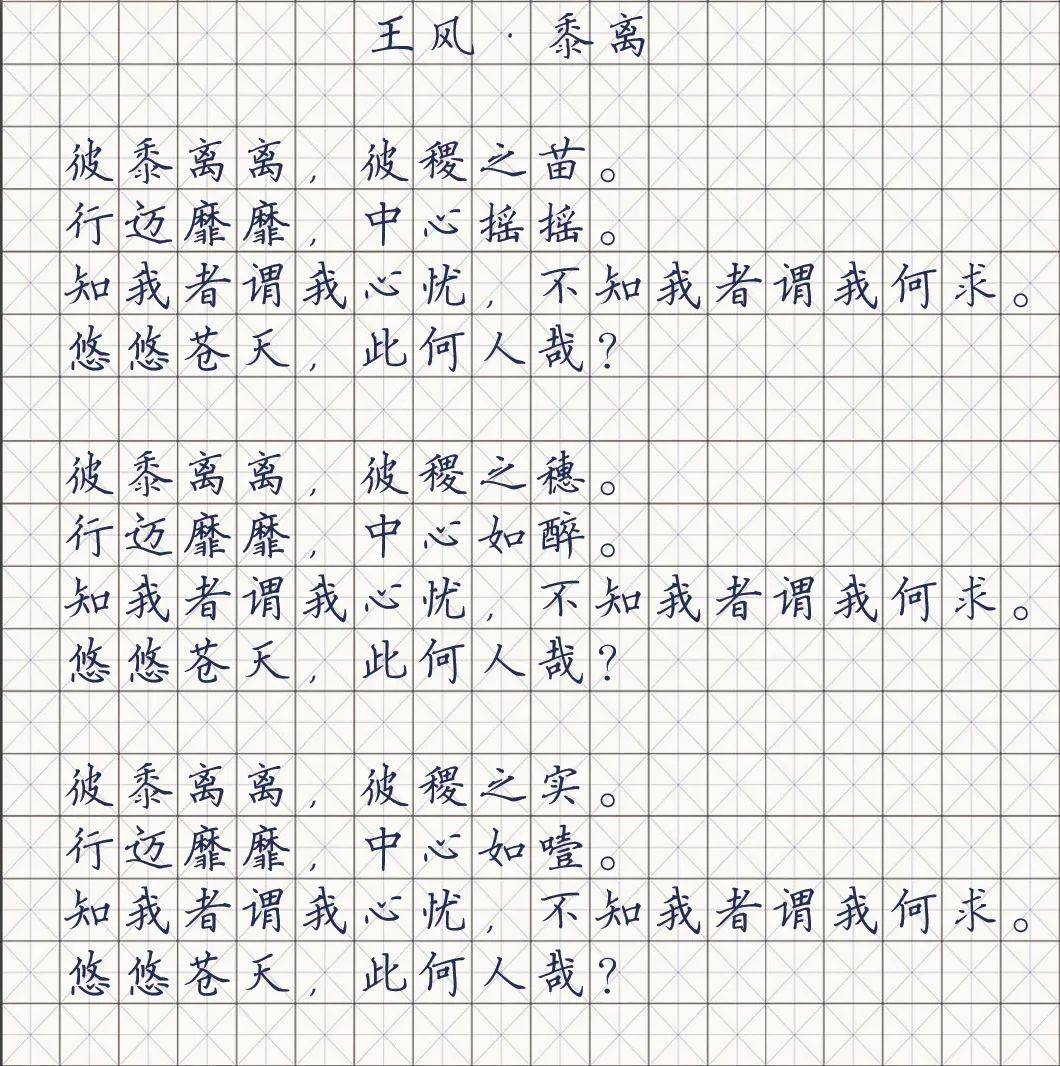 王风·黍离
彼黍离离，彼稷之苗。
行迈靡靡，中心摇摇。
知我者谓我心忧，不知我者谓我何求。
悠悠苍天，此何人哉？
彼黍离离，彼稷之穗。
行迈靡靡，中心如醉。
知我者谓我心忧，不知我者谓我何求。
悠悠苍天，此何人哉？
彼黍离离，彼稷之实。
行迈靡靡，中心如噎。
知我者谓我心忧，不知我者谓我何求。
悠悠苍天，此何人哉？